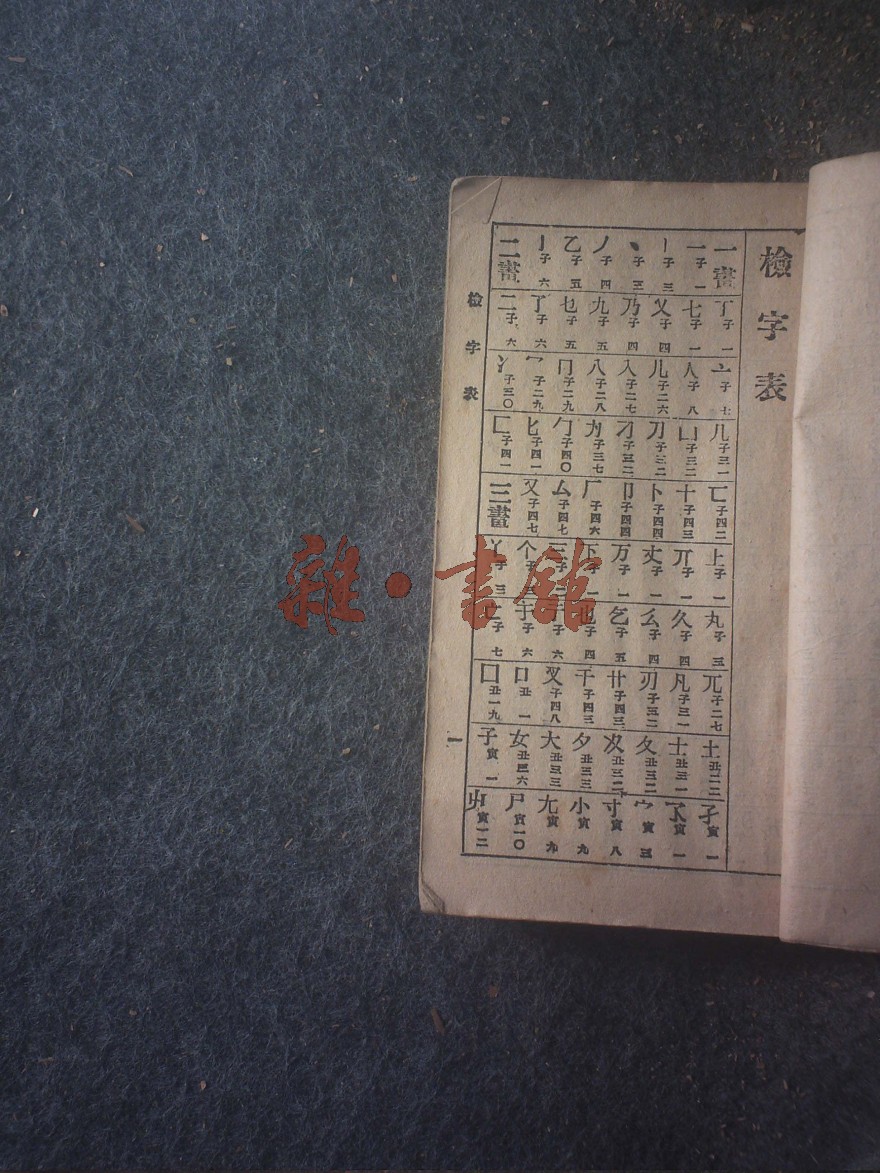 檢字表
一畫 一子一 丨子三 丶子三 丿子四 乙子五 亅子六 二畫
丁子一 七子一 乂子四 乃子四 九子五 乜子五 了子六 二子六
亠子七 人子八 儿子二六 入子二七 八子二八 冂子二九 冖子二九 冫子三〇
几子三一 凵子三二 刀子三二 刁子三二 力子三七 勹子四〇 匕子四一 匚子四一
匸子四二 十子四三 卜子四四 卩子四四 厂子四六 厶子四七 又子四七 三畫
上子一 丌子一 丈子一 万子一 下子一 三子 个子 丫子三
丸子三 久子四 么子四 乞子五 也子四 子六 于子六 亡子七
兀子二七 凡子三一 刃子三二 廿子四三 千子四三 叉子四八 口丑一 囗丑一九
土丑二二 士丑三一 夂丑三二 夊丑三二 夕丑三三 大丑三三 女丑三六 子寅一
孑寅一 孓寅一 宀寅三 寸寅八 小寅九 尢寅九 尸寅一〇 屮寅一二
檢字表
一
雜·書館